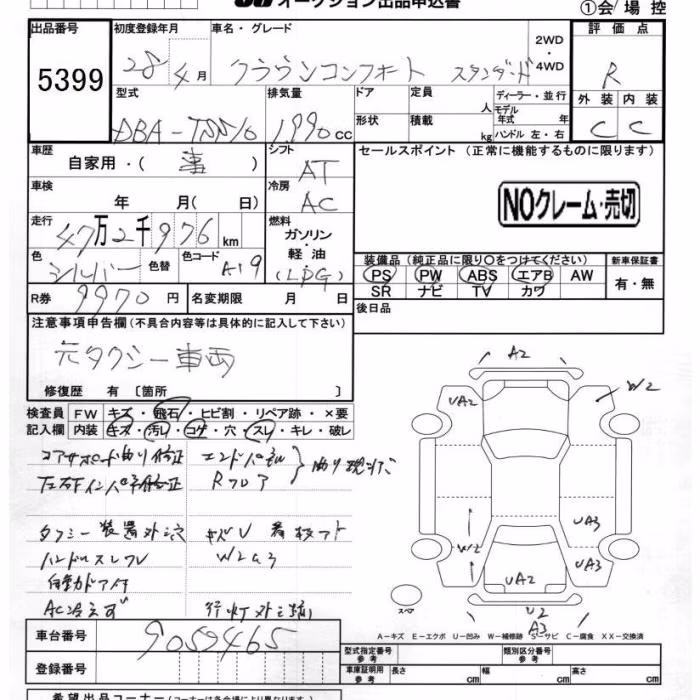 オークション出品申込書
①会／場 控
出品番号
5399
初度登録年月
28年4月
車名・グレード
クラウンコンフォート スタンダード
2WD
・
4WD
評価点
R
外装 内装
C C
型式
DBA-TSS10
排気量
1990cc
ドア
定員
人
形状
積載
kg
ディーラー・並行
モデル年式 年
ハンドル 左・右
車歴
自家用・( )
シフト
AT
セールスポイント (正常に機能するものに限ります)
NOクレーム・売切
車検
年 月( 日)
冷房
AC
走行
47万2千976km
燃料
ガソリン・軽油
(LPG)
色
シルバー
色替
色コード
A19
装備品(純正品に限り○をつけてください)
PS PW ABS エアB AW
SR ナビ TV カワ
新車保証書
有・無
R券
9970円
名変期限 月 日
後日品
注意事項申告欄(不具合内容等は具体的に記入して下さい)
元タクシー車両
修復歴 有〔箇所 〕
検査員記入欄
FW キズ・飛石・ヒビ割・リペア跡・×要
内装 キズ・汚レ・コゲ・穴・スレ・キレ・破レ
コアサポート曲り修正
エンドパネル
Rフロア
曲り現状
タクシー装置外シ穴
ハンドルスレ
W2U3
自動ドア付
AC冷えず
A2
UA2
UA2
W2
W2
UA3
UA3
UA2
U2
A3
スペア
A－キズ E－エクボ U－凹み W－補修跡 S－サビ C－腐食 XX－交換済
車台番号
9059465
登録番号
型式指定番号 参考
類別区分番号 参考
車庫証明用 参考
長さ
幅
高さ
cm
cm
cm
希望出品コーナー